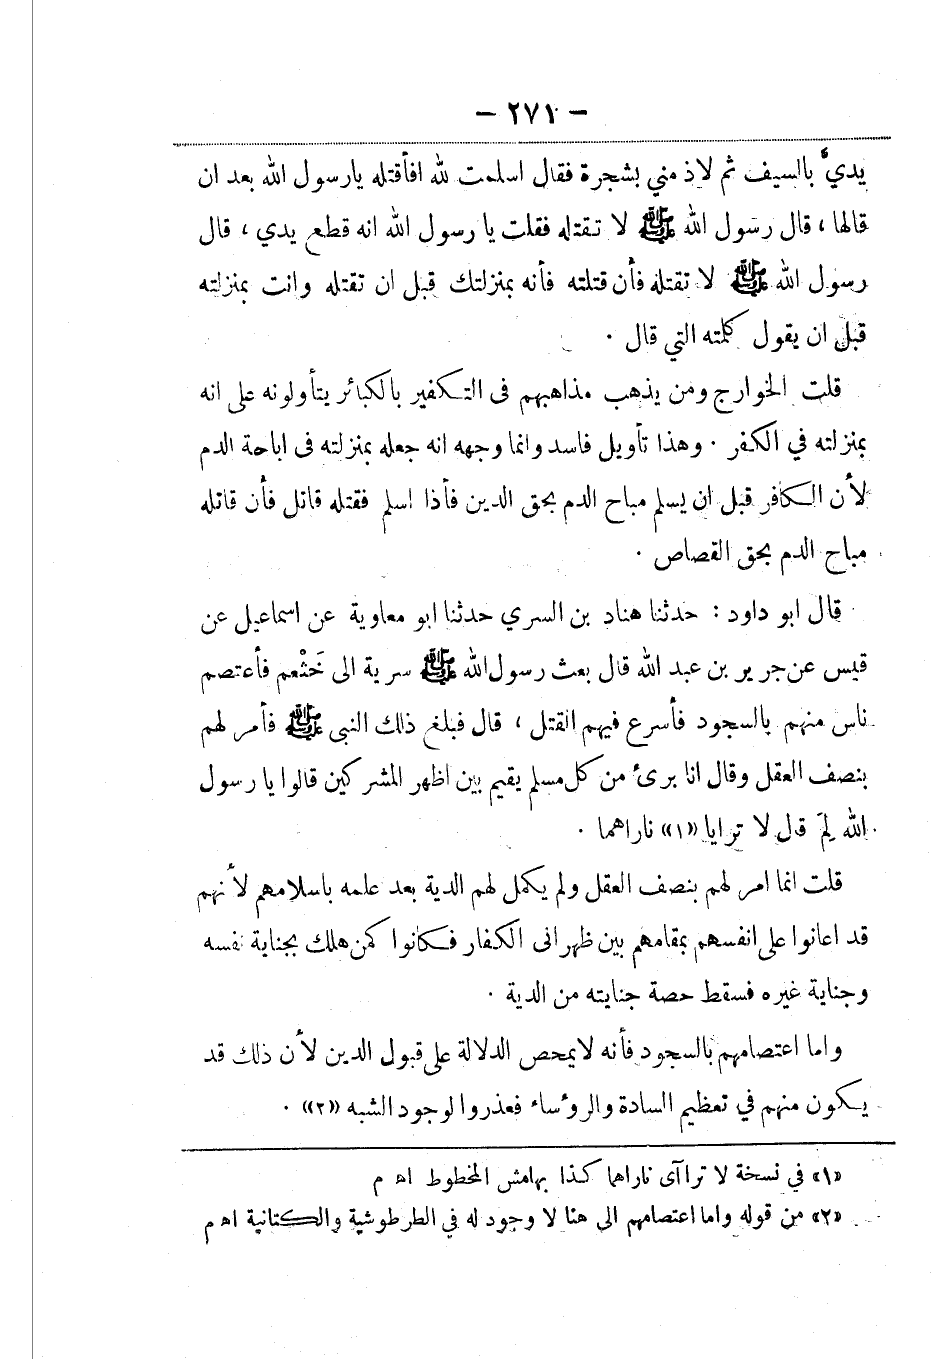 – ٢٧١ –
يديَّ بالسيف ثم لاذ مني بشجرة فقال اسلمت لله افأقتله يارسول الله بعد ان
قالها ، قال رسول الله ﷺ لا تقتله فقلت يا رسول الله انه قطع يدي ، قال
رسول الله ﷺ لا تقتله فأن قتلته فأنه بمنزلتك قبل ان تقتله وانت بمنزلته
قبل ان يقول كلمته التي قال ٠
قلت الخوارج ومن يذهب مذاهبهم فى التكفير بالكبائر يتأولونه على انه
بمنزلته في الكفر ٠ وهذا تأويل فاسد وانما وجهه انه جعله بمنزلته فى اباحة الدم
لأن الكافر قبل ان يسلم مباح الدم بحق الدين فأذا اسلم فقتله قاتل فأن قاتله
مباح الدم بحق القصاص ٠
قال ابو داود : حدثنا هناد بن السري حدثنا ابو معاوية عن اسماعيل عن
قيس عن جرير بن عبد الله قال بعث رسول الله ﷺ سرية الى خَثْعم فأعتصم
ناس منهم بالسجود فأسرع فيهم القتل ، قال فبلغ ذلك النبى ﷺ فأمر لهم
بنصف العقل وقال انا برئ من كل مسلم يقيم بين اظهر المشركين قالوا يا رسول
الله لِمَ قال لا ترايا «١» ناراهما ٠
قلت انما امر لهم بنصف العقل ولم يكمل لهم الدية بعد علمه باسلامهم لأنهم
قد اعانوا على انفسهم بمقامهم بين ظهرانى الكفار فكانوا كمن هلك بجناية نفسه
وجناية غيره فسقط حصة جنايته من الدية ٠
واما اعتصامهم بالسجود فأنه لايمحص الدلالة على قبول الدين لأن ذلك قد
يكون منهم في تعظيم السادة والرؤساء فعذروا لوجود الشبه «٢» ٠
«١» في نسخة لا تراآى ناراهما كذا بهامش المخطوط اه م
«٢» من قوله واما اعتصامهم الى هنا لا وجود له في الطرطوشية والكتانية اه م